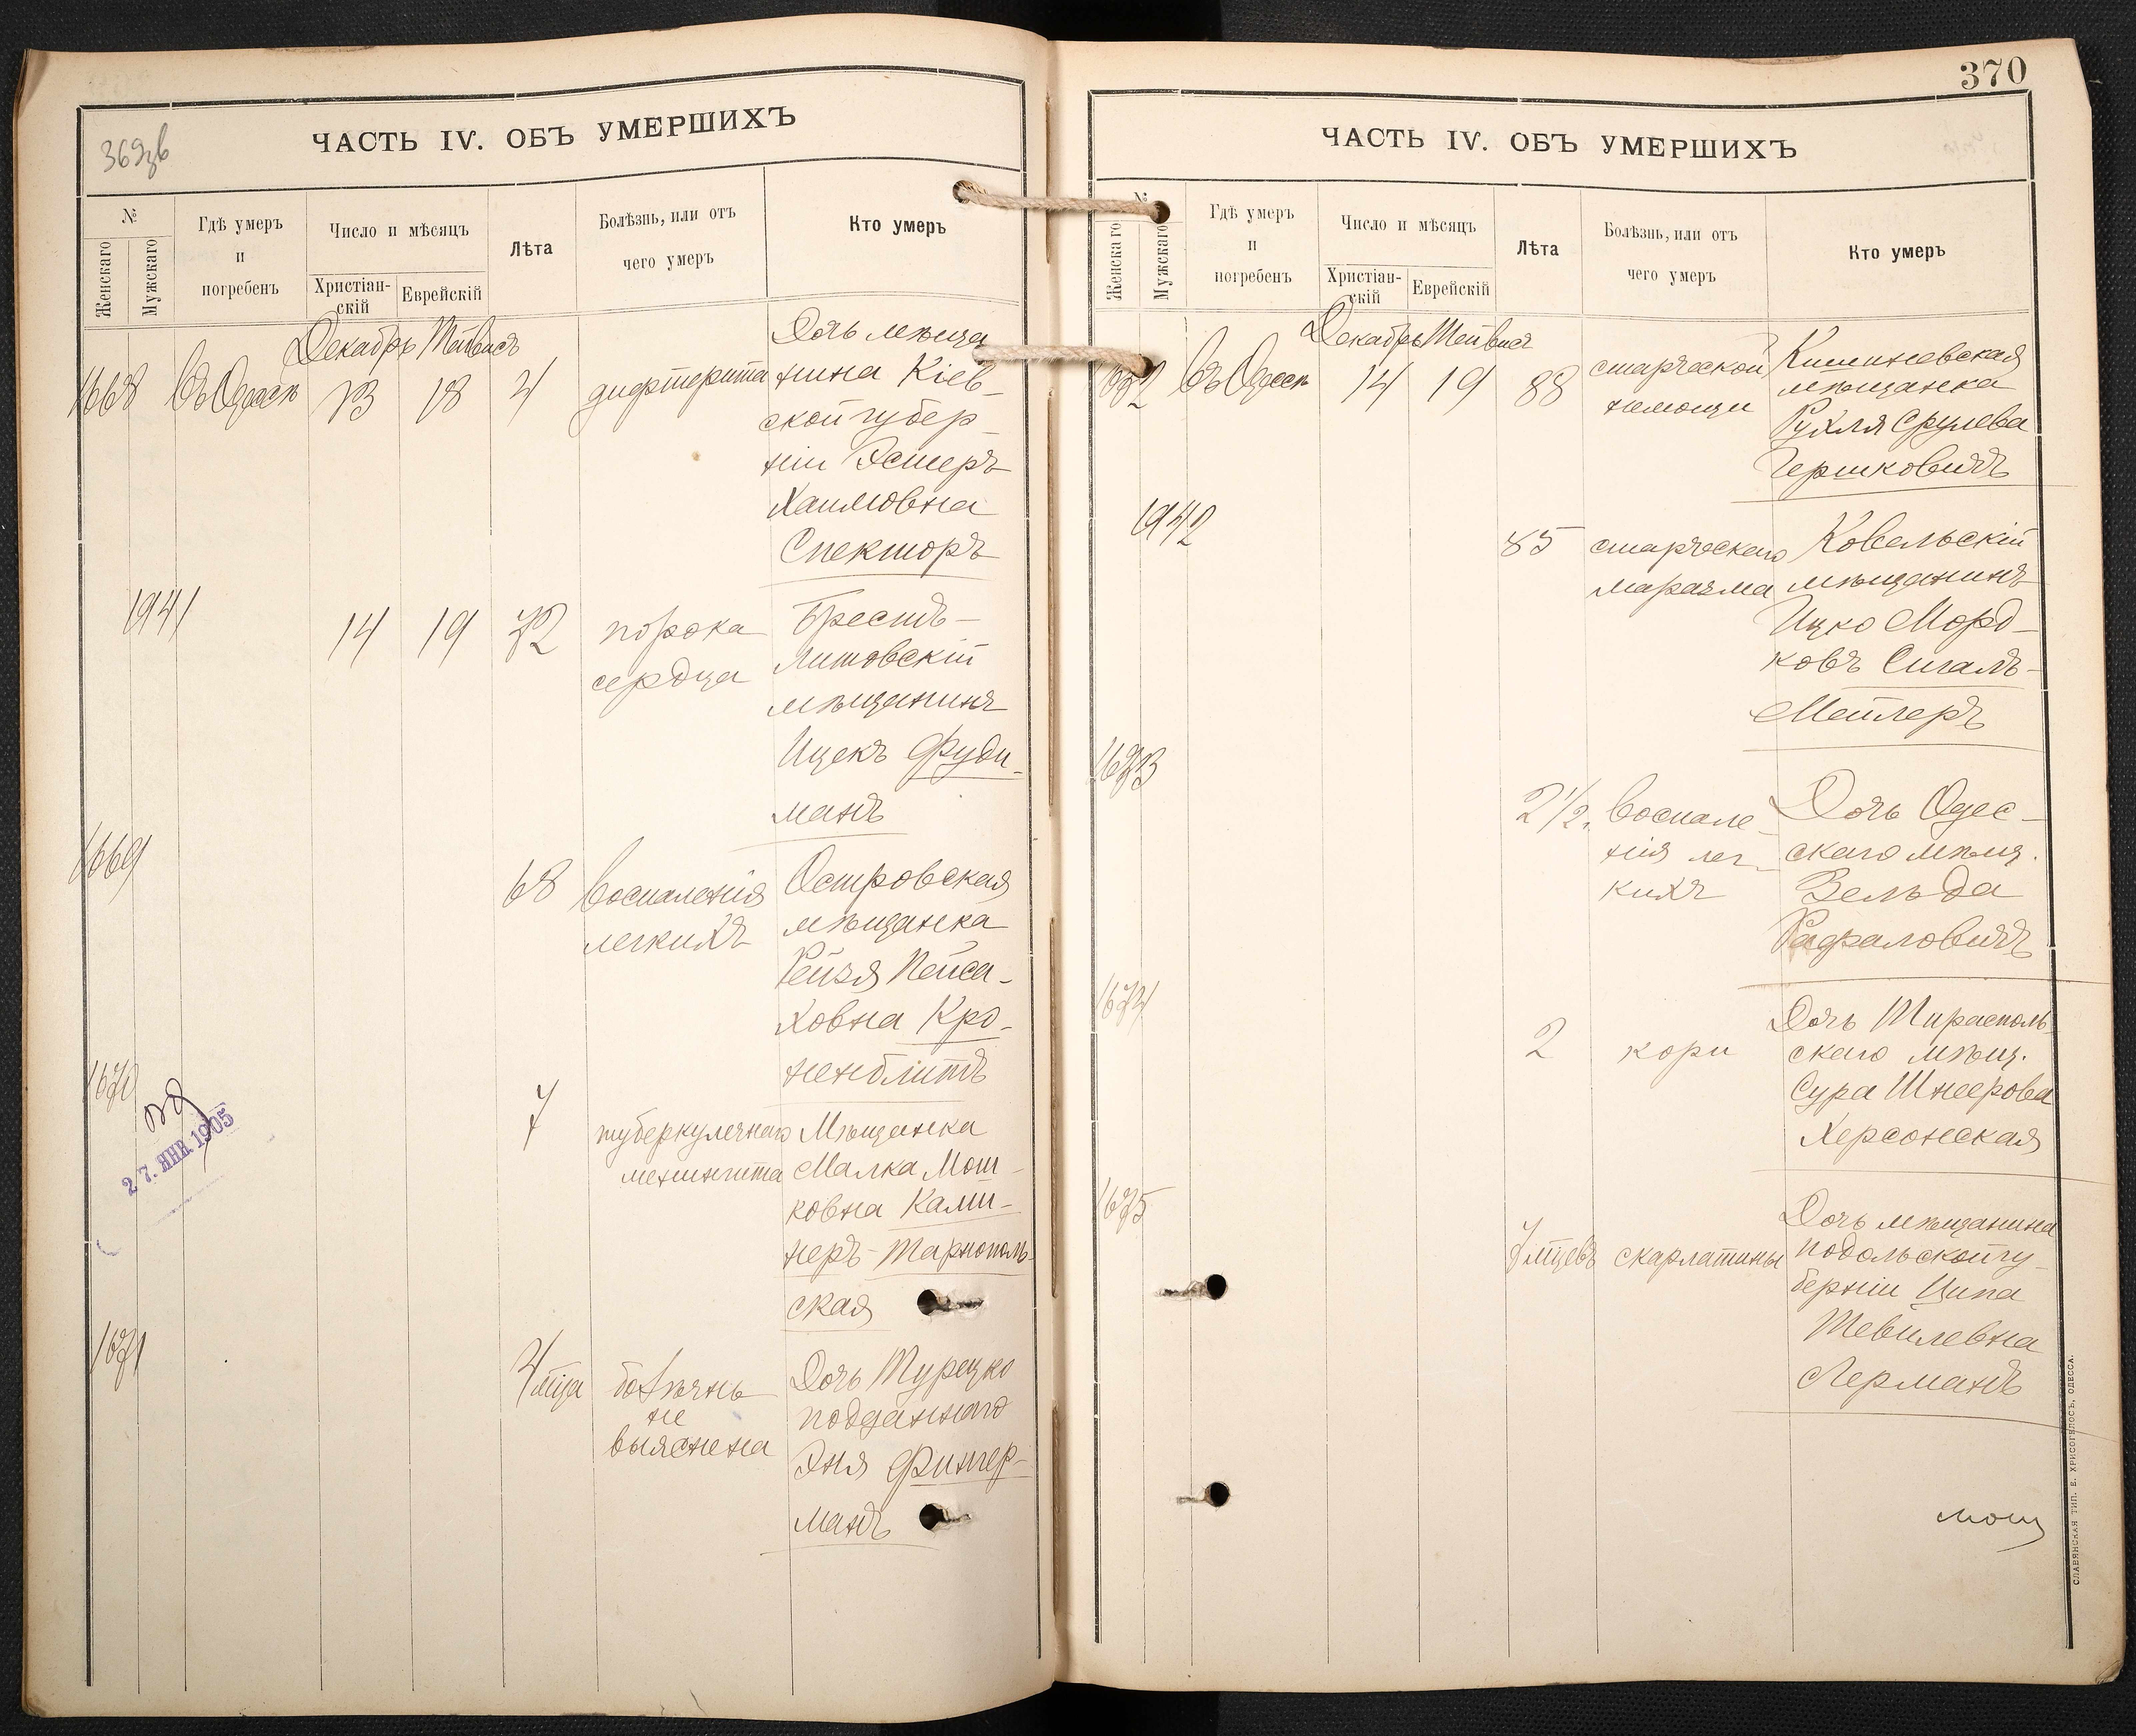 369зв
ЧАСТЬ IV. ОБЪ УМЕРШИХЪ
№
Женскаго
Мужскаго
Гдѣ умеръ
и
погребенъ
Число и мѣсяцъ
Христіан-
скій
Еврейскій
Лѣта
Болѣзнь, или отъ
чего умеръ
Кто умеръ
Декабрь Тейвисъ
1668 Въ Одессѣ 13 18 4 дифтерита
Дочь мѣща
нина Кіев-
ской губер-
ніи Эстеръ
Хаимовна
Спекторъ
1941 14 19 72
порока
сердца
Брестъ-
Литовскій
мѣщанинъ
Ицекъ Фуди-
манъ
1669 68
воспаленія
легкихъ
Островская
мѣщанка
Рейзя Пейса-
ховна Кро-
ненблитъ
1670 7
туберкулезнаго
менингита
Мѣщанка
Малка Мош-
ковна Ками-
неръ-Тарнополь-
ская
27. ЯНВ. 1905
1671 4 мѣца
болѣзнь
не
выяснена
Дочь Турецко
подданнаго
Эня Фингер-
манъ
370
ЧАСТЬ IV. ОБЪ УМЕРШИХЪ
№
Женскаго
Мужскаго
Гдѣ умеръ
и
погребенъ
Число и мѣсяцъ
Христіан-
скій
Еврейскій
Лѣта
Болѣзнь, или отъ
чего умеръ
Кто умеръ
Декабрь Тейвисъ
1672 Въ Одессѣ 14 19 88
старческой
немощи
Кишиневская
мѣщанка
Рухля Срулева
Гершковичъ
1942 85
старческаго
маразма
Ковельскій
мѣщанинъ
Ицко Морд-
ковъ Сигалъ-
Мейлеръ
1673 2 1/2.
воспале-
нія лег-
кихъ
Дочь Одес-
скаго мѣщ.
Зельда
Рафаловичъ
1674 2 кори
Дочь Тирасполь-
скаго мѣщ.
Сура Шнеерова
Херсонская
1675 7 мѣцевъ скарлатины
Дочь мѣщанина
Подольской гу-
берніи Ципа
Тевилевна
Лерманъ
СЛАВЯНСКАЯ ТИП. Е. ХРИСОГЕЛОСЪ, ОДЕССА.